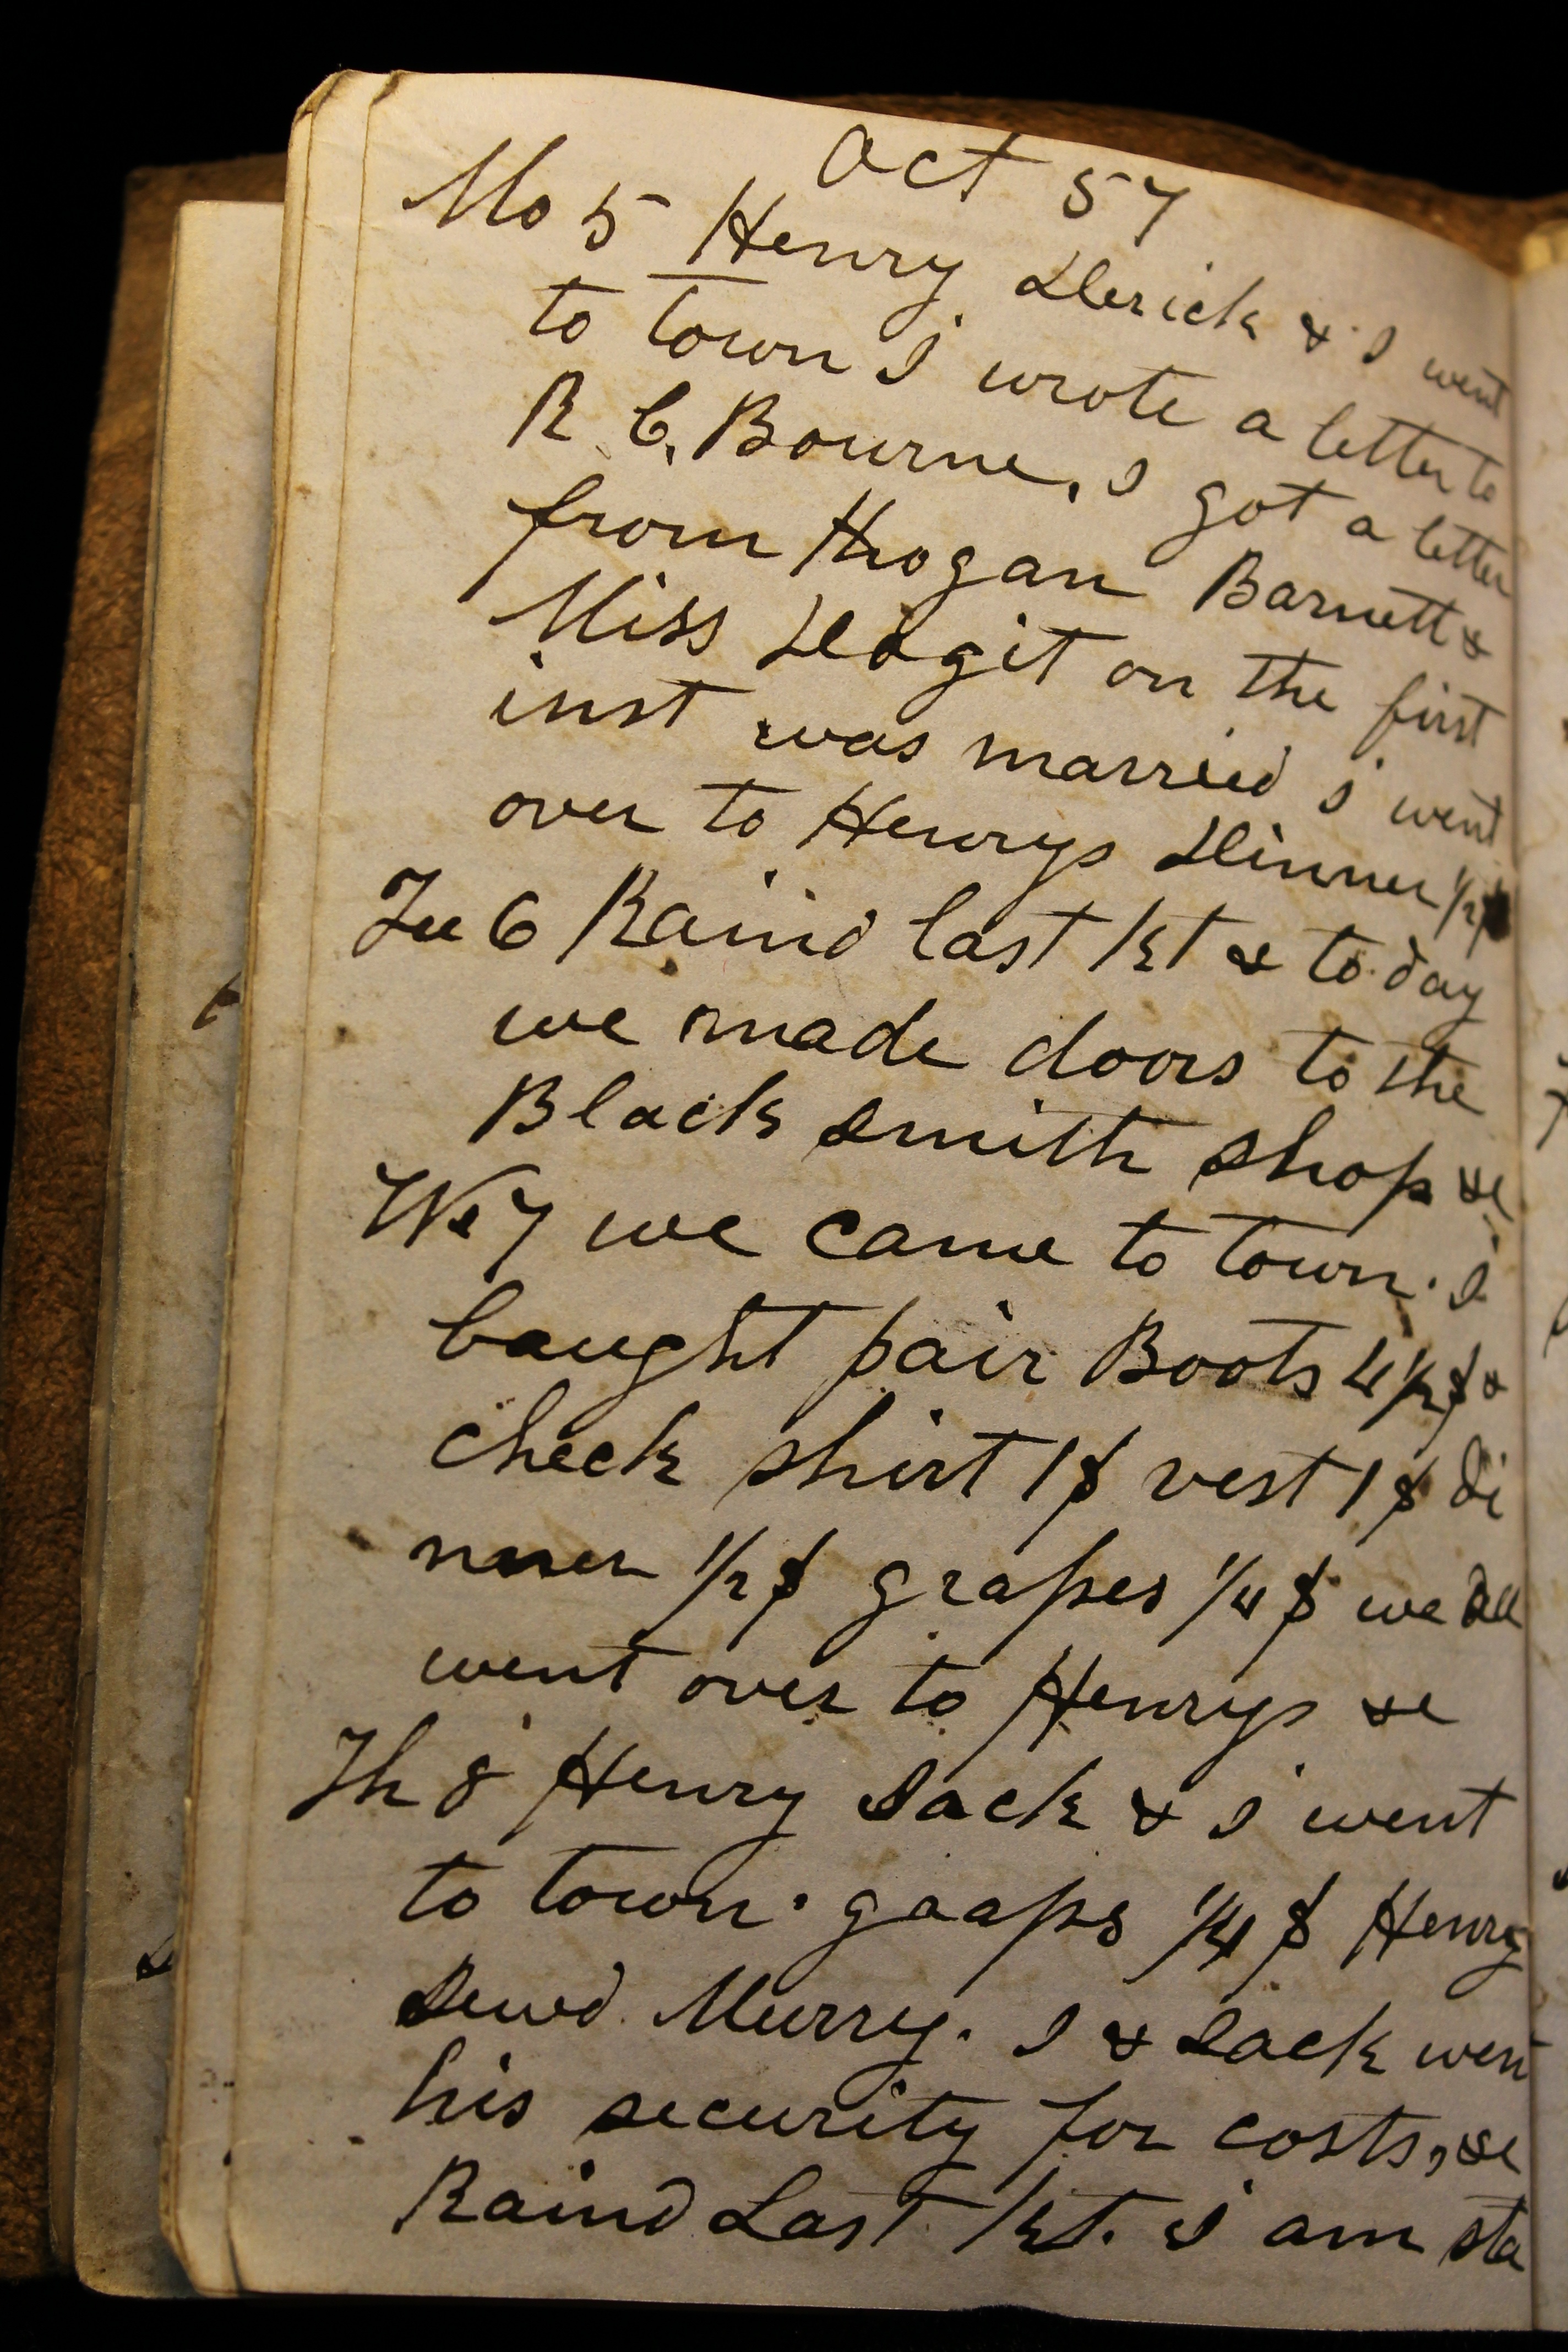 Oct 57
Mo 5 Henry Derick & I went
to town I wrote a letter to
R. C. Bourne, I got a letter
from Hogan Barnett &
Miss on the first
inst was married I went
over to Henrys Dinner 1/2$
Tu 6 Raind last & to day
we made doors to the
Black smith shop &c
We 7 we came to town. I
baught pair Boots 4 1/2$ &
check shirt 1$ vest 1$ di
nner 1/2$ grapes 1/4$ we all
went over to Henrys &c
Th 8 Henry Sack & I went
to town. graaps 1/4$ Henry
Sewd Murry. I & Sack wen
his security for costs, &c
Raind Last I am sta